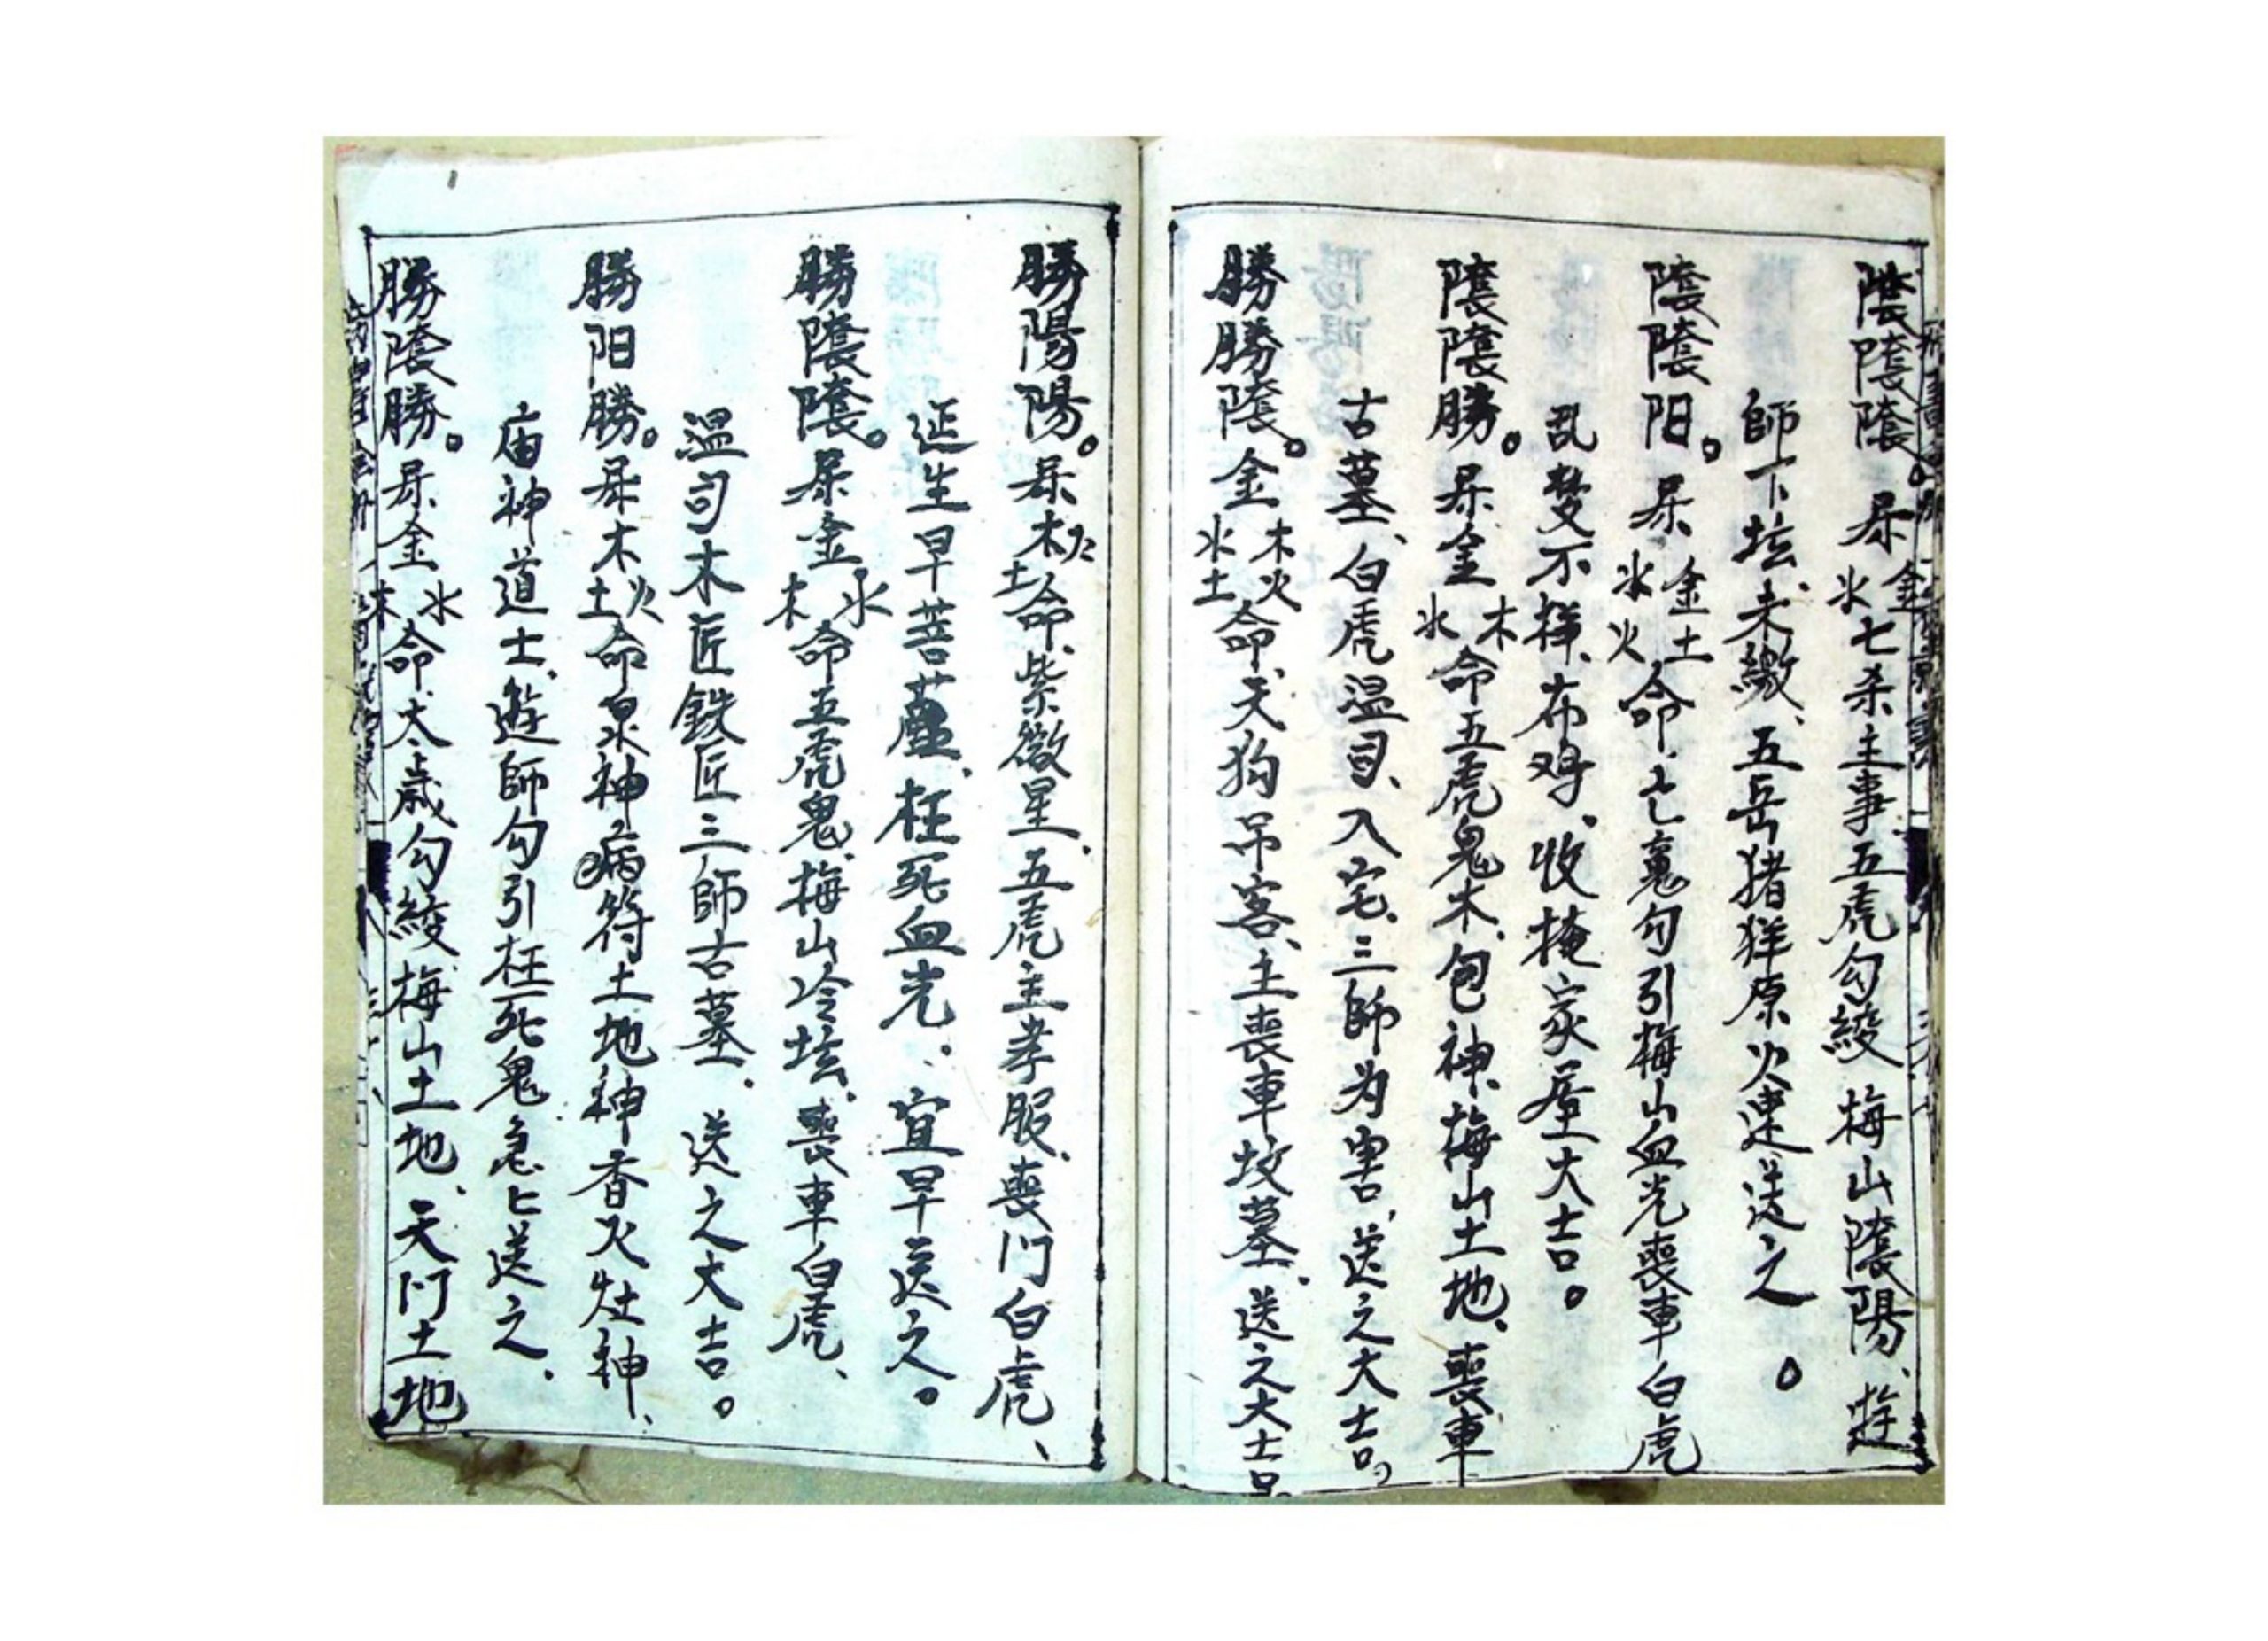 隂隂隂。杀金水七杀主事五虎勾綾梅山隂陽、
師下坛、未繳、五岳猪羊原火速送之。
隂隂阳。杀金土水火命、七裏勾引梅山血光喪車白虎
乱梦不祥、布、收掩家屋大吉。
隂隂勝。杀金木水命五虎鬼木、包神、梅山土地、喪車
古墓、白虎温司、入宅、三師为害、送之大吉。
勝勝隂。金木火水土命、天狗吊客、土喪車坟墓、送之大吉。
勝陽陽。杀木火土命、紫微星、五虎主孝服、喪门白虎、
延生早菩薩、枉死血光、宜早送之。
勝隂隂。杀金水木命五虎鬼、梅山冷坛、喪車白虎、
温司木匠鉄匠三師古墓、送之大吉。
勝阳勝。杀木火土命泉神病符土地神香火灶神、
庙神道士、遊師勾引枉死鬼急匕送之、
勝隂勝。杀金水木命、太歳勾綾梅山土地、天门土地